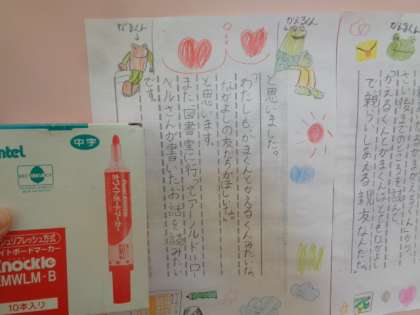 かえるくん
で、親しいしあえる親友なんだな。
かえるくん
と思いました。
わたしも、がまくんとかえるくんみたいな、
なかよしの友だちがほしいな。
と思います。
また図書室に行ってアーノルド＝ロー
ベルさんが書いたお話を読みたい
です。
がまくん
ntel
中字
ホワイトボードマーカー
ュリフレッシュ方式
イトボードマーカー
nockle
MWLM-B
10本入り